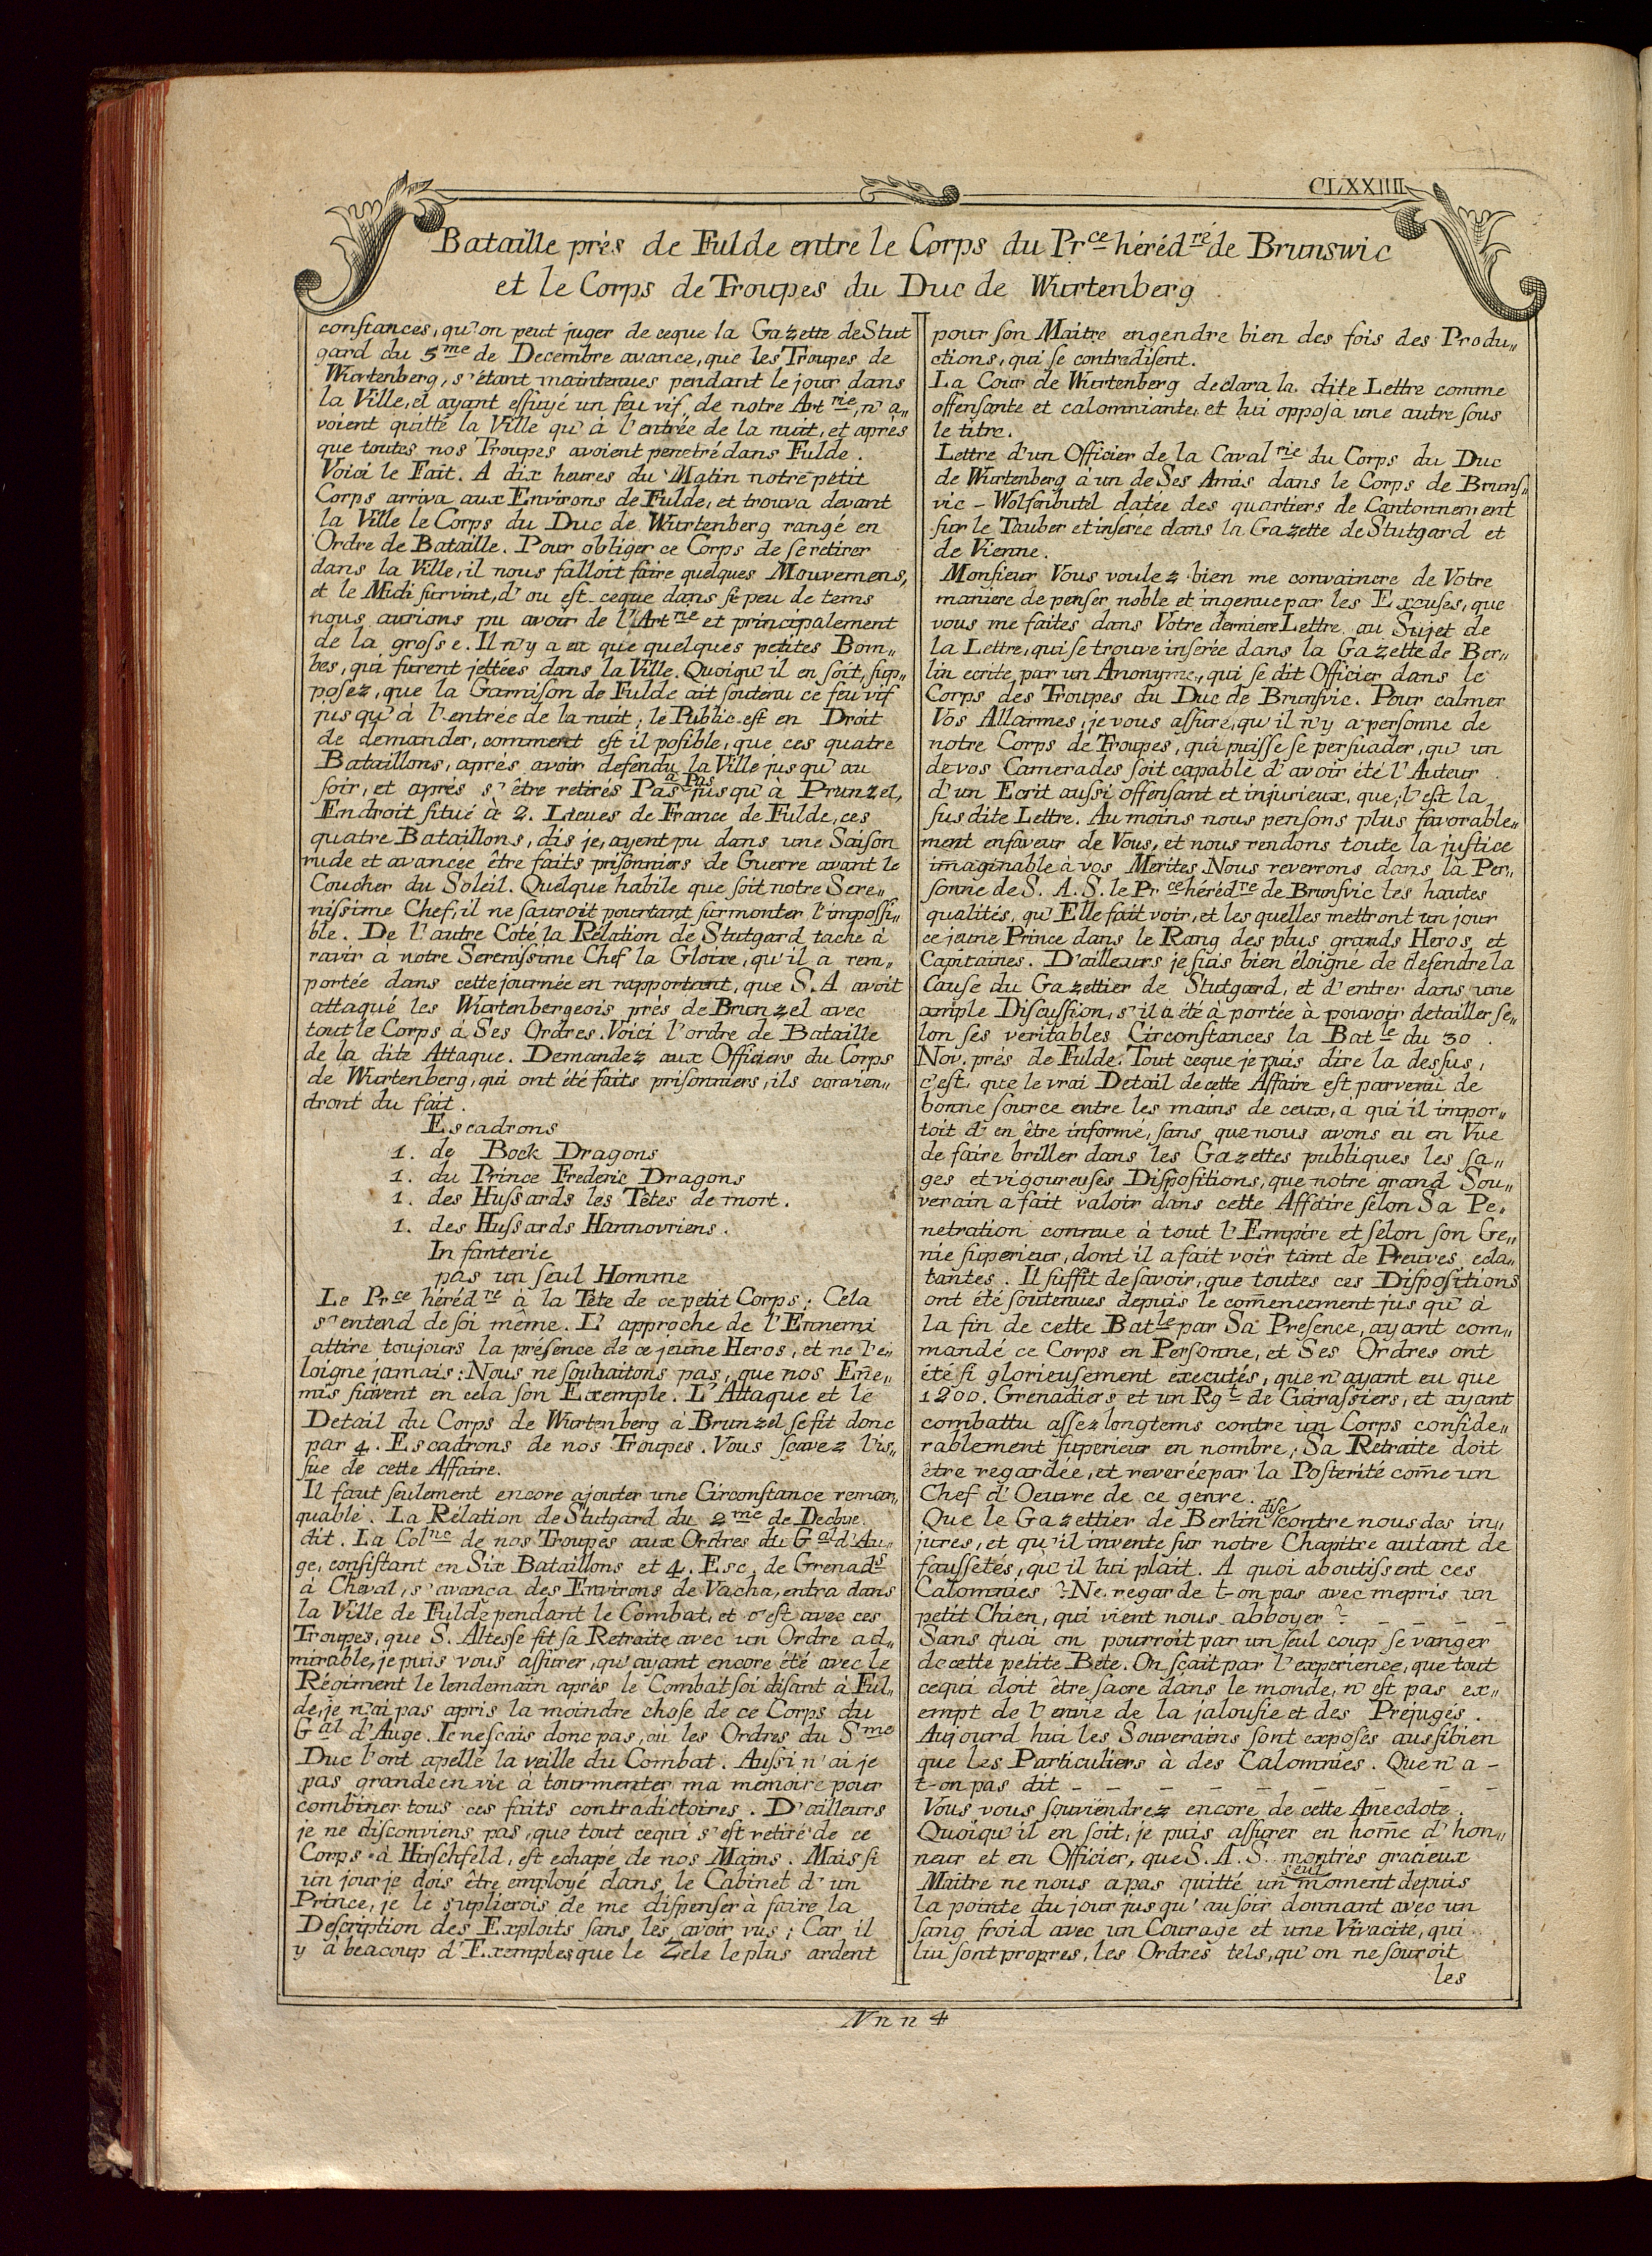 CLXXIIII
Bataille près de Fulde entre le Corps du Prce héréd.re de Brunswic
et le Corps de Troupes du Duc de Wurtenberg
constances, qu'on peut juger de ceque la Gazette de Stut
gard du 5me de Decembre avance, que les Troupes de
Wurtenberg, s'étant maintenues pendant le jour dans
la Ville, et ayant essuyé un feu vif de notre Art rie, n'a„
voient quitté la Ville qu'à l'entrée de la nuit, et après
que toutes nos Troupes avoient penetré dans Fulde.
Voici le Fait. A dix heures du Matin notre petit
Corps arriva aux Environs de Fulde, et trouva devant
la Ville le Corps du Duc de Wurtenberg rangé en
Ordre de Bataille. Pour obliger ce Corps de se retirer
dans la Ville, il nous falloit faire quelques Mouvemens,
et le Midi survint, d'ou est-ceque dans si peu de tems
nous aurions pu avoir de l'Art rie et principalement
de la grosse. Il n'y a eu que quelques petites Bom„
bes, qui furent jettées dans la Ville. Quoiqu'il en soit, sup„
posez, que la Garnison de Fulde ait soutenu ce feu vif
jusqu'à l'entrée de la nuit; le Public est en Droit
de demander, comment est il posible, que ces quatre
Bataillons, après avoir defendu la Ville jusqu'au
soir, et après s'être retirés Pas à Pas jusqu'a Prunzel,
Endroit situé à 2. Lieues de France de Fulde, ces
quatre Bataillons, dis je, ayent pu dans une Saison
rude et avancée être faits prisonniers de Guerre avant le
Coucher du Soleil. Quelque habile que soit notre Sere„
nissime Chef, il ne sauroit pourtant surmonter l'impossi„
ble. De l'autre Coté la Rélation de Stutgard tache à
ravir à notre Serenissime Chef la Gloire, qu'il a rem„
portée dans cette journée en rapportant, que S.A avoit
attaqué les Wurtenbergeois près de Brunzel avec
tout le Corps à Ses Ordres. Voici l'ordre de Bataille
de la dite Attaque. Demandez aux Officiers du Corps
de Wurtenberg, qui ont été faits prisonniers, ils convien„
dront du fait.
Escadrons
1. de Bock Dragons
1. du Prince Frederic Dragons
1. des Hussards les Têtes de mort.
1. des Hussards Hannovriens.
Infanterie
pas un seul Homme
Le Prce héréd re à la Tête de ce petit Corps; Cela
s'entend de soi même. L'approche de l'Ennemi
attire toujours la présence de ce jeune Heros, et ne l'e„
loigne jamais: Nous ne souhaitons pas, que nos En̄e„
mis suivent en cela son Exemple. L'Attaque et le
Detail du Corps de Wurtenberg à Brunzel se fit donc
par 4. Escadrons de nos Troupes. Vous scavez l'is„
sue de cette Affaire.
Il faut seulement encore ajouter une Circonstance remar„
quable. La Rélation de Stutgard du 2me de Decbre.
dit. La Colne de nos Troupes aux Ordres du Gal d'Au„
ge, consistant en Six Bataillons et 4. Esc. de Grenads
à Cheval, s'avança des Environs de Vacha, entra dans
la Ville de Fulde pendant le Combat, et c'est avec ces
Troupes, que S. Altesse fit sa Retraite avec un Ordre ad„
mirable, je puis vous assurer, qu'ayant encore été avec le
Régiment le lendemain après le Combat soi disant à Ful„
de, je n'ai pas apris la moindre chose de ce Corps du
Gal d'Auge. Ie ne scais donc pas, où les Ordres du Sme
Duc l'ont apellé la veille du Combat. Aussi n'ai je
pas grande envie à tourmenter ma memoire pour
combiner tous ces faits contradictoires. D'ailleurs
je ne disconviens pas, que tout cequi s'est retiré de ce
Corps à Hirschfeld, est echapé de nos Mains. Mais si
un jour je dois être employé dans le Cabinet d'un
Prince, je le suplierois de me dispenser à faire la
Description des Exploits sans les avoir vus; Car il
y à beacoup d'Exemples que le Zele le plus ardent
pour son Maitre engendre bien des fois des Produ„
ctions, qui se contredisent.
La Cour de Wurtenberg declara la dite Lettre comme
offensante et calomniante, et lui opposa une autre sous
le titre.
Lettre d'un Officier de la Caval rie du Corps du Duc
de Wurtenberg à un de Ses Amis dans le Corps de Bruns„
vic-Wolfenbutel datée des quartiers de Cantonnement
sur le Tauber et inserée dans la Gazette de Stutgard et
de Vienne.
Monsieur Vous voulez bien me convaincre de Votre
maniere de penser noble et ingenue par les Excuses, que
vous me faites dans Votre derniere Lettre au Sujet de
la Lettre, qui se trouve inserée dans la Gazette de Ber„
lin ecrite par un Anonyme, qui se dit Officier dans le
Corps des Troupes du Duc de Brunsvic. Pour calmer
Vos Allarmes, je vous assure, qu'il n'y a personne de
notre Corps de Troupes, qui puisse se persuader, qu'un
de vos Camerades soit capable d'avoir été l'Auteur
d'un Ecrit aussi offensant et injurieux, que l'est la
susdite Lettre. Au moins nous pensons plus favorable„
ment enfaveur de Vous, et nous rendons toute la justice
imaginable à vos Merites. Nous reverrons dans la Per„
sonne de S. A. S. le Pr ce héréd re de Brunsvic les hautes
qualités, qu'Elle fait voir, et les quelles mettront un jour
ce jeune Prince dans le Rang des plus grands Heros et
Capitaines. D'ailleurs je suis bien éloigné de defendre la
Cause du Gazettier de Stutgard, et d'entrer dans une
ample Discussion, s'il a été à portée à pouvoir detailler se„
lon ses veritables Circonstances la Batle du 30.
Nov. près de Fulde. Tout ceque je puis dire la dessus,
c'est que le vrai Detail de cette Affaire est parvenu de
bonne source entre les mains de ceux, à qui il impor„
toit d'en être informé, sans que nous avons eu en Vue
de faire briller dans les Gazettes publiques les sa„
ges et vigoureuses Dispositions, que notre grand Sou„
verain a fait valoir dans cette Affaire selon Sa Pe„
netration connue à tout l'Empire et selon son Ge„
nie superieur, dont il a fait voir tant de Preuves ecla„
tantes. Il suffit de savoir, que toutes ces Dispositions
ont été soutenues depuis le com̄encement jusqu'à
la fin de cette Batle par Sa Presence, ayant com„
mandé ce Corps en Personne, et Ses Ordres ont
été si glorieusement executés, que n'ayant eu que
1200. Grenadiers et un Rgt de Cuirassiers, et ayant
combattu assez longtems contre un Corps conside„
rablement superieur en nombre; Sa Retraite doit
être regardée, et reverée par la Posterité com̄e un
Chef d'Oeuvre de ce genre.
Que le Gazettier de Berlin dise contre nous des in„
jures, et qu'il invente sur notre Chapitre autant de
faussetés, qu'il lui plait. A quoi aboutissent ces
Calomnies? Ne regarde t-on pas avec mepris un
petit Chien, qui vient nous abboyer? - - - - -
Sans quoi on pourroit par un seul coup se vanger
de cette petite Bete. On sçait par l'experience, que tout
cequi doit être sacre dans le monde, n'est pas ex„
empt de l'envie de la jalousie et des Préjugés.
Aujourd'hui les Souverains sont exposés aussibien
que les Particuliers à des Calomnies. Que n'a-
t-on pas dit - - - - - - - - - -
Vous vous souviendrez encore de cette Anecdote.
Quoiqu'il en soit, je puis assurer en hom̄e d'hon„
neur et en Officier, que S. A. S. montrès gracieux
Maitre ne nous a pas quitté un seul moment depuis
la pointe du jour jusqu'au soir donnant avec un
sang froid avec un Courage et une Vivacite, qui
lui sont propres, les Ordres tels, qu'on ne souroit
les
Nnn 4